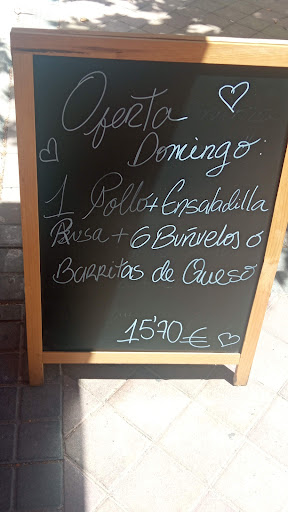 Oferta
Domingo:
1 Pollo + Ensaladilla
Rusa + 6 Buñuelos ó
Barritas de Queso
15'70 €